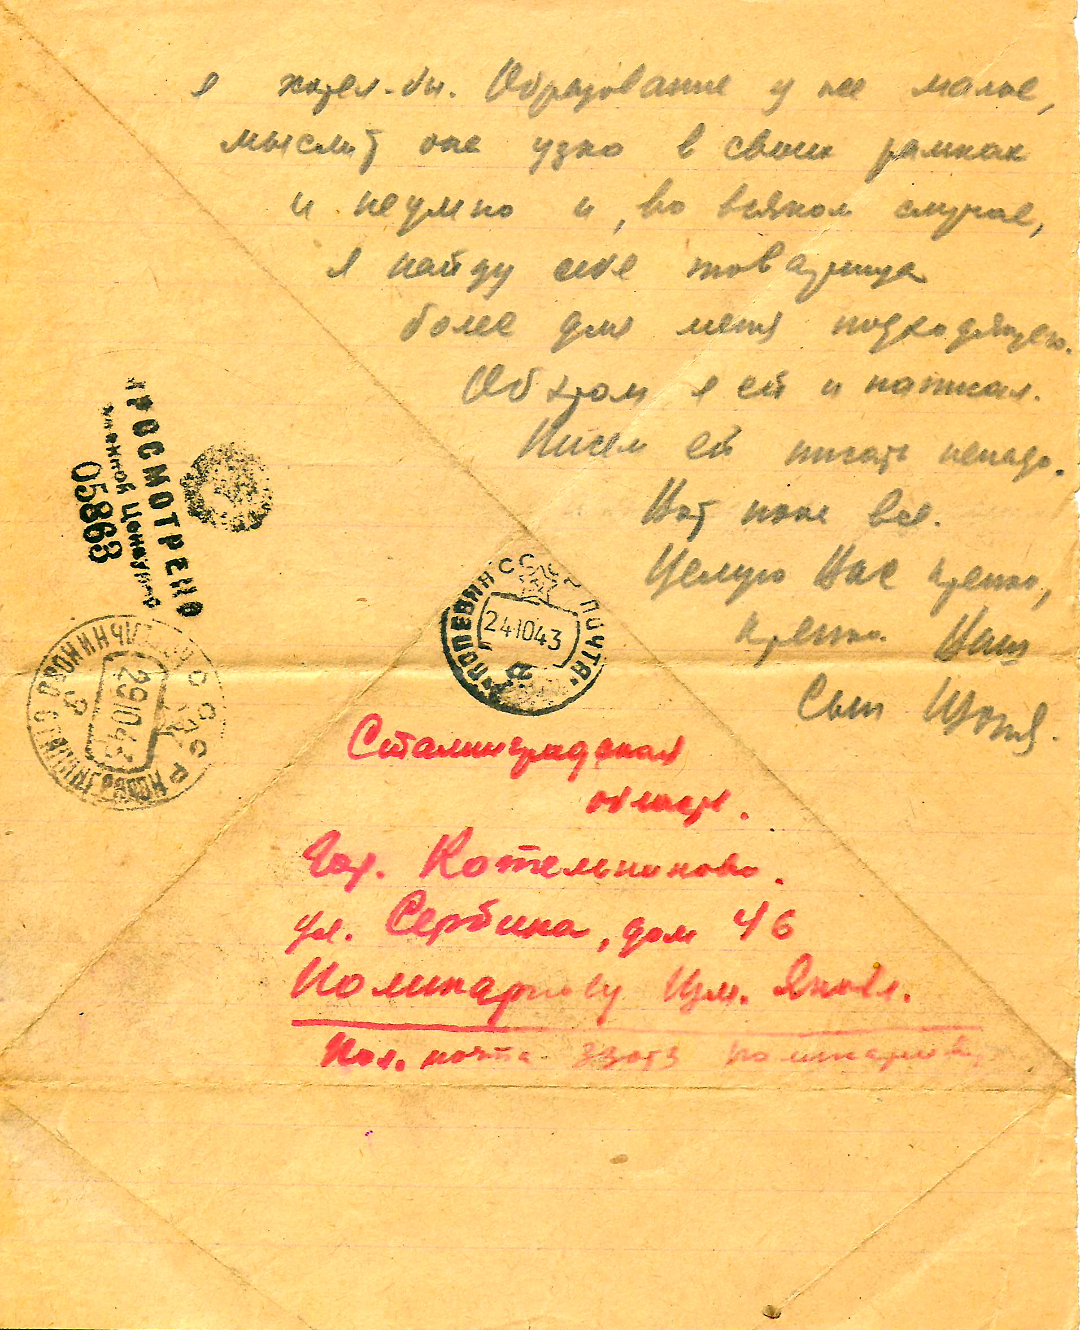 я хотел-бы. Образование у нее малое,
мыслит она узко в своих рамках
и неумно и, во всяком случае,
я найду себе товарища
более для меня подходящего.
Об этом я ей и написал.
Писем ей писать ненадо.
Вот пока все.
Целую Вас крепко,
крепко. Ваш
Сын
ПРОСМОТРЕНО
Военной Цензурой
05863
ПОЛЕВАЯ ПОЧТА
СССР
24 10 43
СССР
29 10 43
Сталинградская
область.
гор. Котельниково.
ул. Сербина, дом 46
Поликарпову Изм. Яковл.
Пол. почта Поликарпов